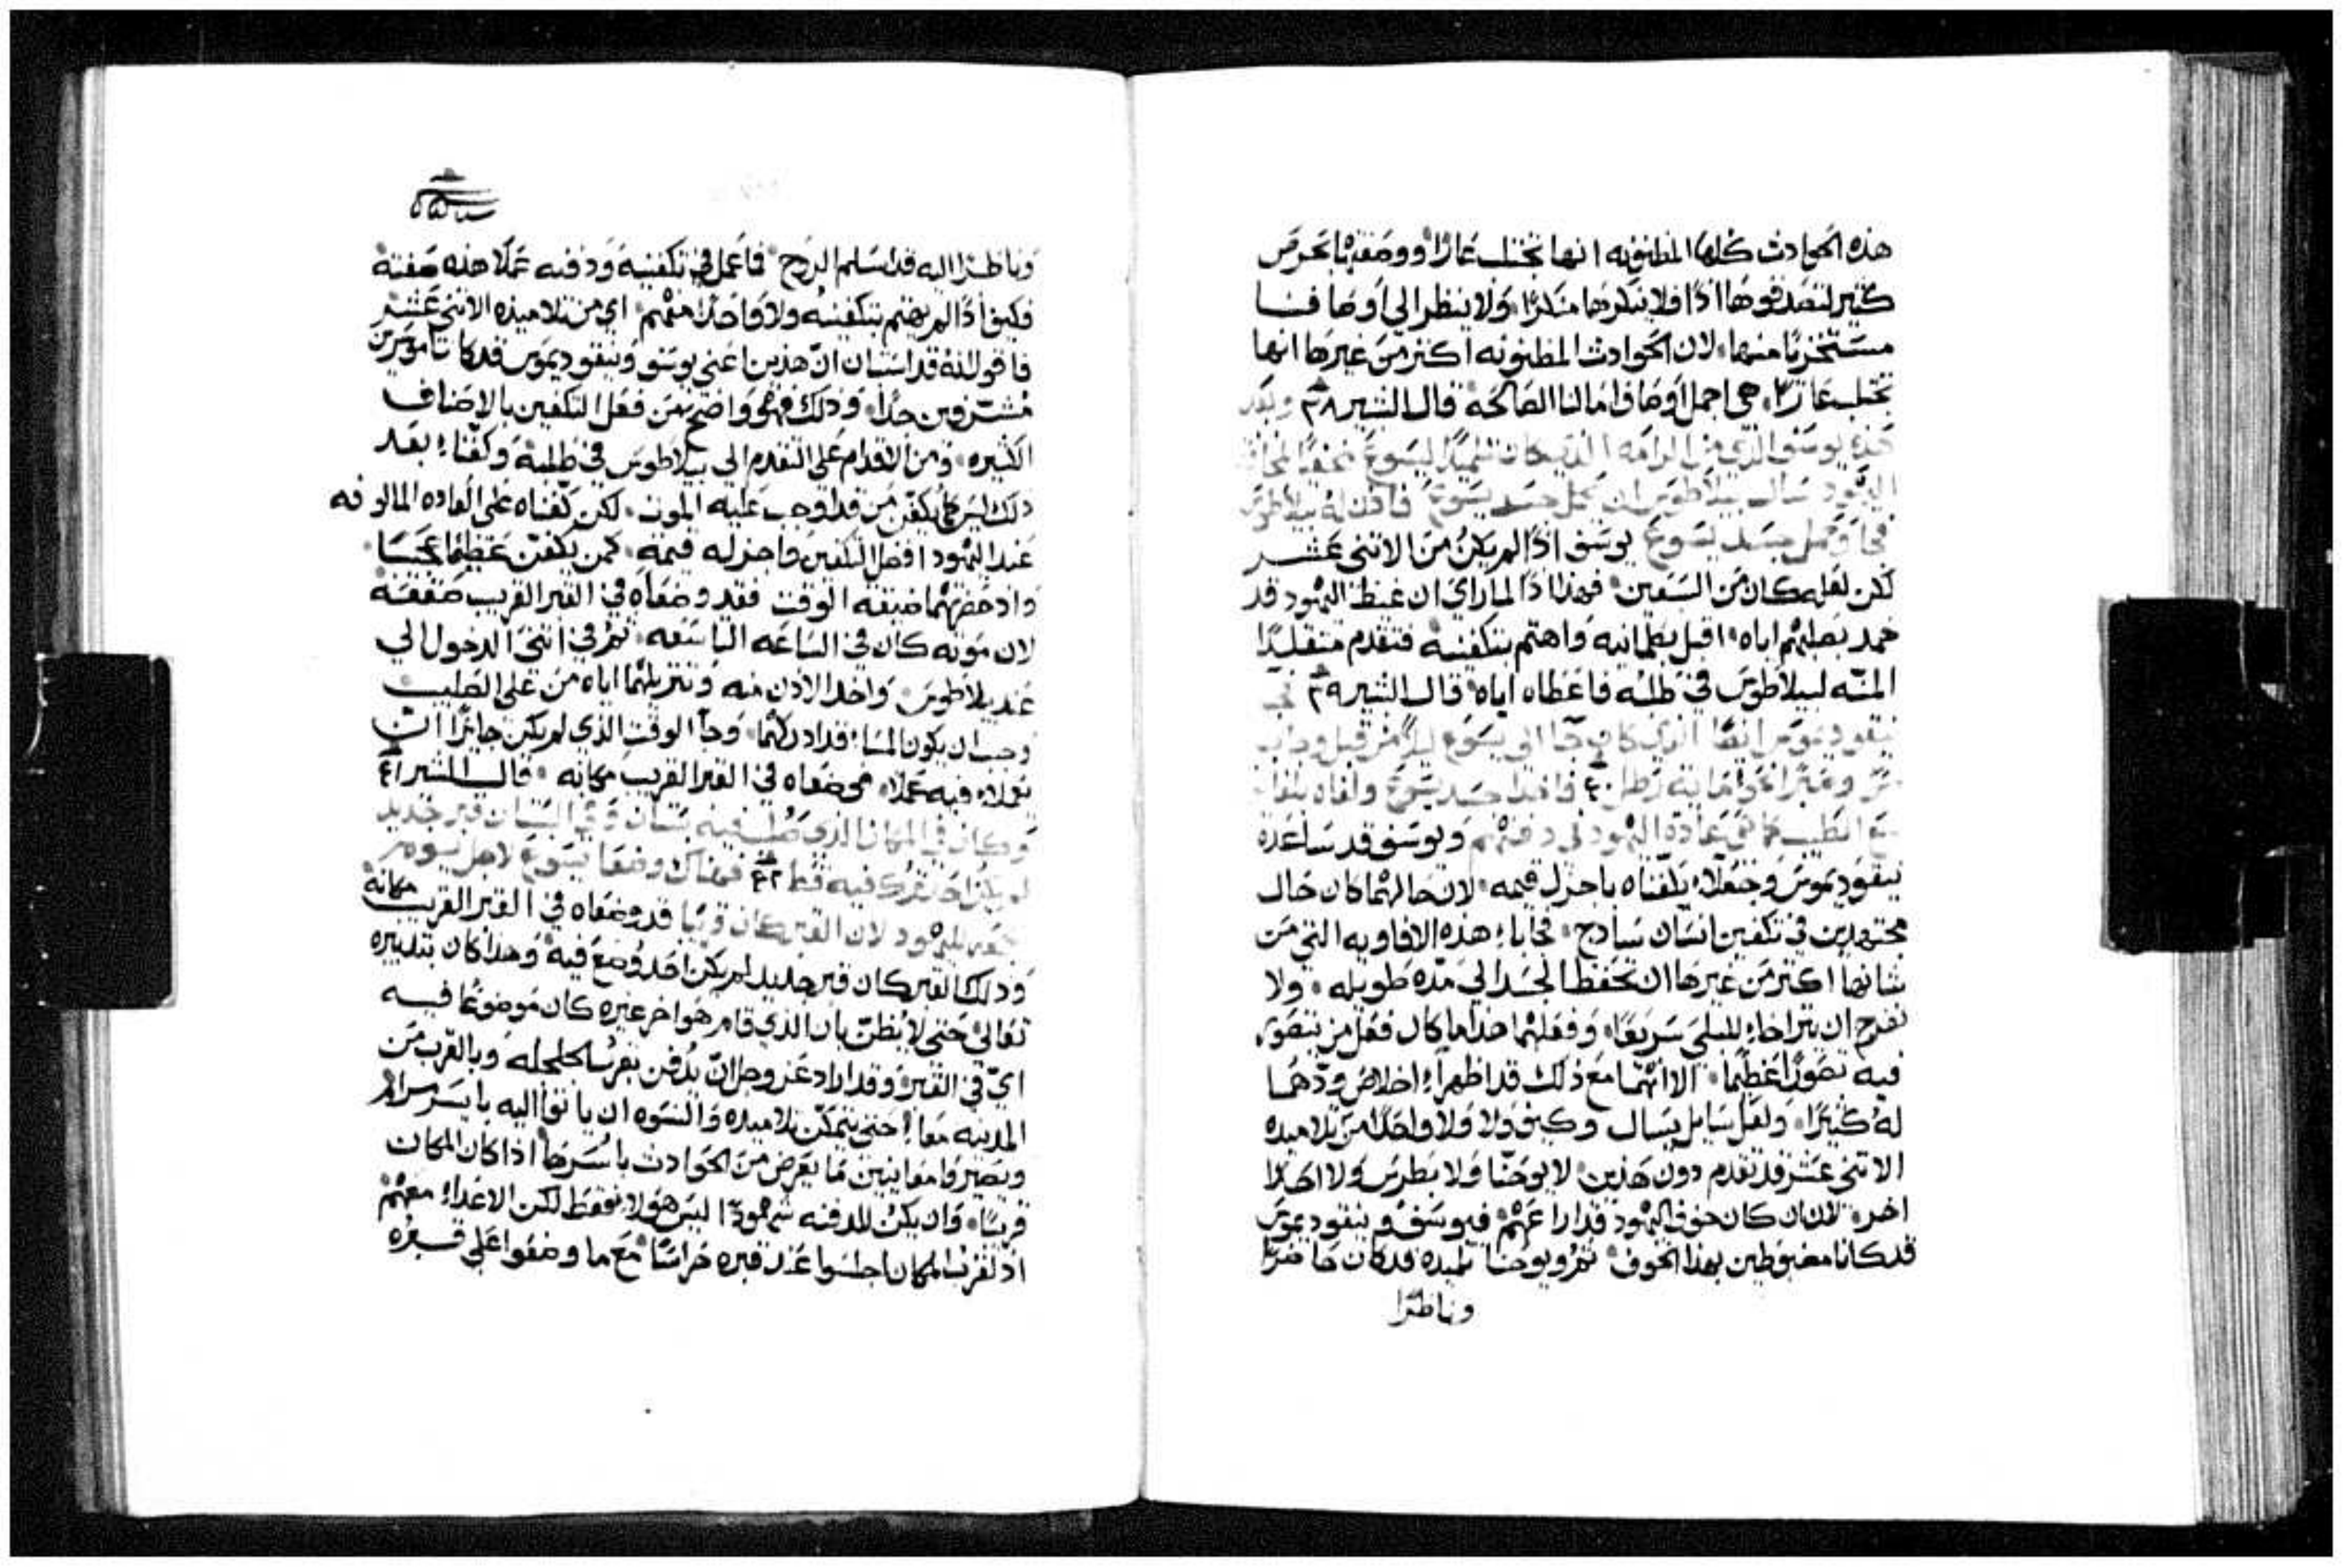 هذه الحوادث كلها المظنونه انها تجتلب عارًا ووصفتها بحرص
كثير لتصدقوها اذًا فلا ينكرها منكرًا ولا ينظر الي اوصافنا
مستخزيًا منها لان الحوادث المظنونه اكثر من غيرها انها
تجتلب عارًا هي اجمل اوصاف امالنا الصالحه قال البشير ٣٨ وبعد
هذه يوسف الذي من الرامه الذي كان تلميذًا ليسوع مخفيًا لمخافة
اليهود سال بيلاطوس ان يحمل جسد يسوع فاذن له بيلاطوس
فجا وحمل جسد يسوع يوسف اذًا لم يكن من الاثني عشر
لكن لعله كان من السبعين فهذا اذًا لما راي ان غيظ اليهود قد
خمد بصلبهم اياه اقبل بطمانيه واهتم بتكفينه فتقدم متقلدًا
المنّه لبيلاطوس في طلبه فاعطاه اياه قال البشير ٣٩ فجا
نيقوديموس ايضًا الذي كان جا الي يسوع ليلًا من قبل وجاب
مرّ وعبرًا نحو ماية رطل ٤٠ فاخذا جسد يسوع ولفاه بلفايف
مع الطيب كما هي عادة اليهود في دفنهم ويوسف قد ساعده
نيقوديموس وجعلا يكفناه باجزل قيمه لان حالهما كان حال
مجتهدين في تكفين انسان ساذج فجابا هذه الافاويه التي من
شانها اكثر من غيرها ان تحفظ الجسد الي مده طويله ولا
تفرج ان يتراخا للبلي سريعًا وفعلهما هذا ما كان فعل من يتصور
فيه تصورًا عظيمًا الا انهما مع ذلك قد اظهرا اخلاص ودّهما
له كثيرًا ولعل سايل يسال وكيف ولا ولا واحدًا من تلاميده
الاثني عشر قد تقدم دون هذين لا يوحنّا ولا بطرس ولا احدًا
اخر لان ان كان خوف اليهود قد اراعهم فيوسف ونيقوديموس
قد كانا مضبوطين بهذا الخوف ثم ويوحنا تلميده قد كان حاضرًا
وناظرًا
وناظرًا اليه قد اسلم الروح فاعمل في تكفينه ودفنه عملًا هذه صفته
فكيف اذًا لم يهتم بتكفينه ولا واحدًا منهم اي من تلاميذه الاثني عشر
فاقول انه قد استبان ان هذين اعني يوسف ونيقوديموس قد كانا موسرين
مشرّفين جدًا وذلك فهو واضح من فعل التكفين بالاصناف
الكثيره ومن الاقدام علي التقدم الي بيلاطوس في طلبه وكفّناه بعد
ذلك ليس كما يكفّن من قد اوجب عليه الموت لكن كفّناه علي العاده المالوفه
عند اليهود افضل التكفين واجزله قيمه كمن يكفّن عظيمًا محتسبًا
واذ حفزتهما ضيقة الوقت فقد وضعاه في القبر القريب
لان موته كان في الساعه التاسعه ثم في اثني الدخول الي
عند بيلاطوس واخد الاذن منه وتنزيلهما اياه من علي الصليب
وجب ان يكون المسا قد ادركهما وجا الوقت الذي لم يكن جايزًا ان
يعملا فيه عملًا فوضعاه في القبر القريب مكانه قال البشير ٤١
وكان في المكان الذي صُلب فيه بستان وفي البستان قبر جديد
لم يكن احد ترك فيه قط ٤٢ فهناك وضعا يسوع لاجل يوم
جمعه اليهود لان القبر كان قريبًا قد وضعاه في القبر القريب مكانه
وذلك القبر كان قبر جديد لم يكن احد وُضع فيه وهذا كان بتدبيره
تعالي حتي لا يُظنّ بان الذي قام هو اخر غيره كان موضوعًا فيه
ايّ في القبر وقد اراد عز وجل انّ يُدفن بقرب الجلجله وبالقرب من
المدينه معًا حتي يتمكّن تلاميده والنسوه ان ياتوا اليه بايسر مرام
ويصيروا معاينين ما يعرض من الحوادث باسرها اذا كان المكان
قريبًا وان يكن للدفنه شهودًا ليس هولا فقط لكن الاعدا معهم
اذ لقرب المكان اجلسوا عند قبره حراسًا مع ما وضعوا علي قبره